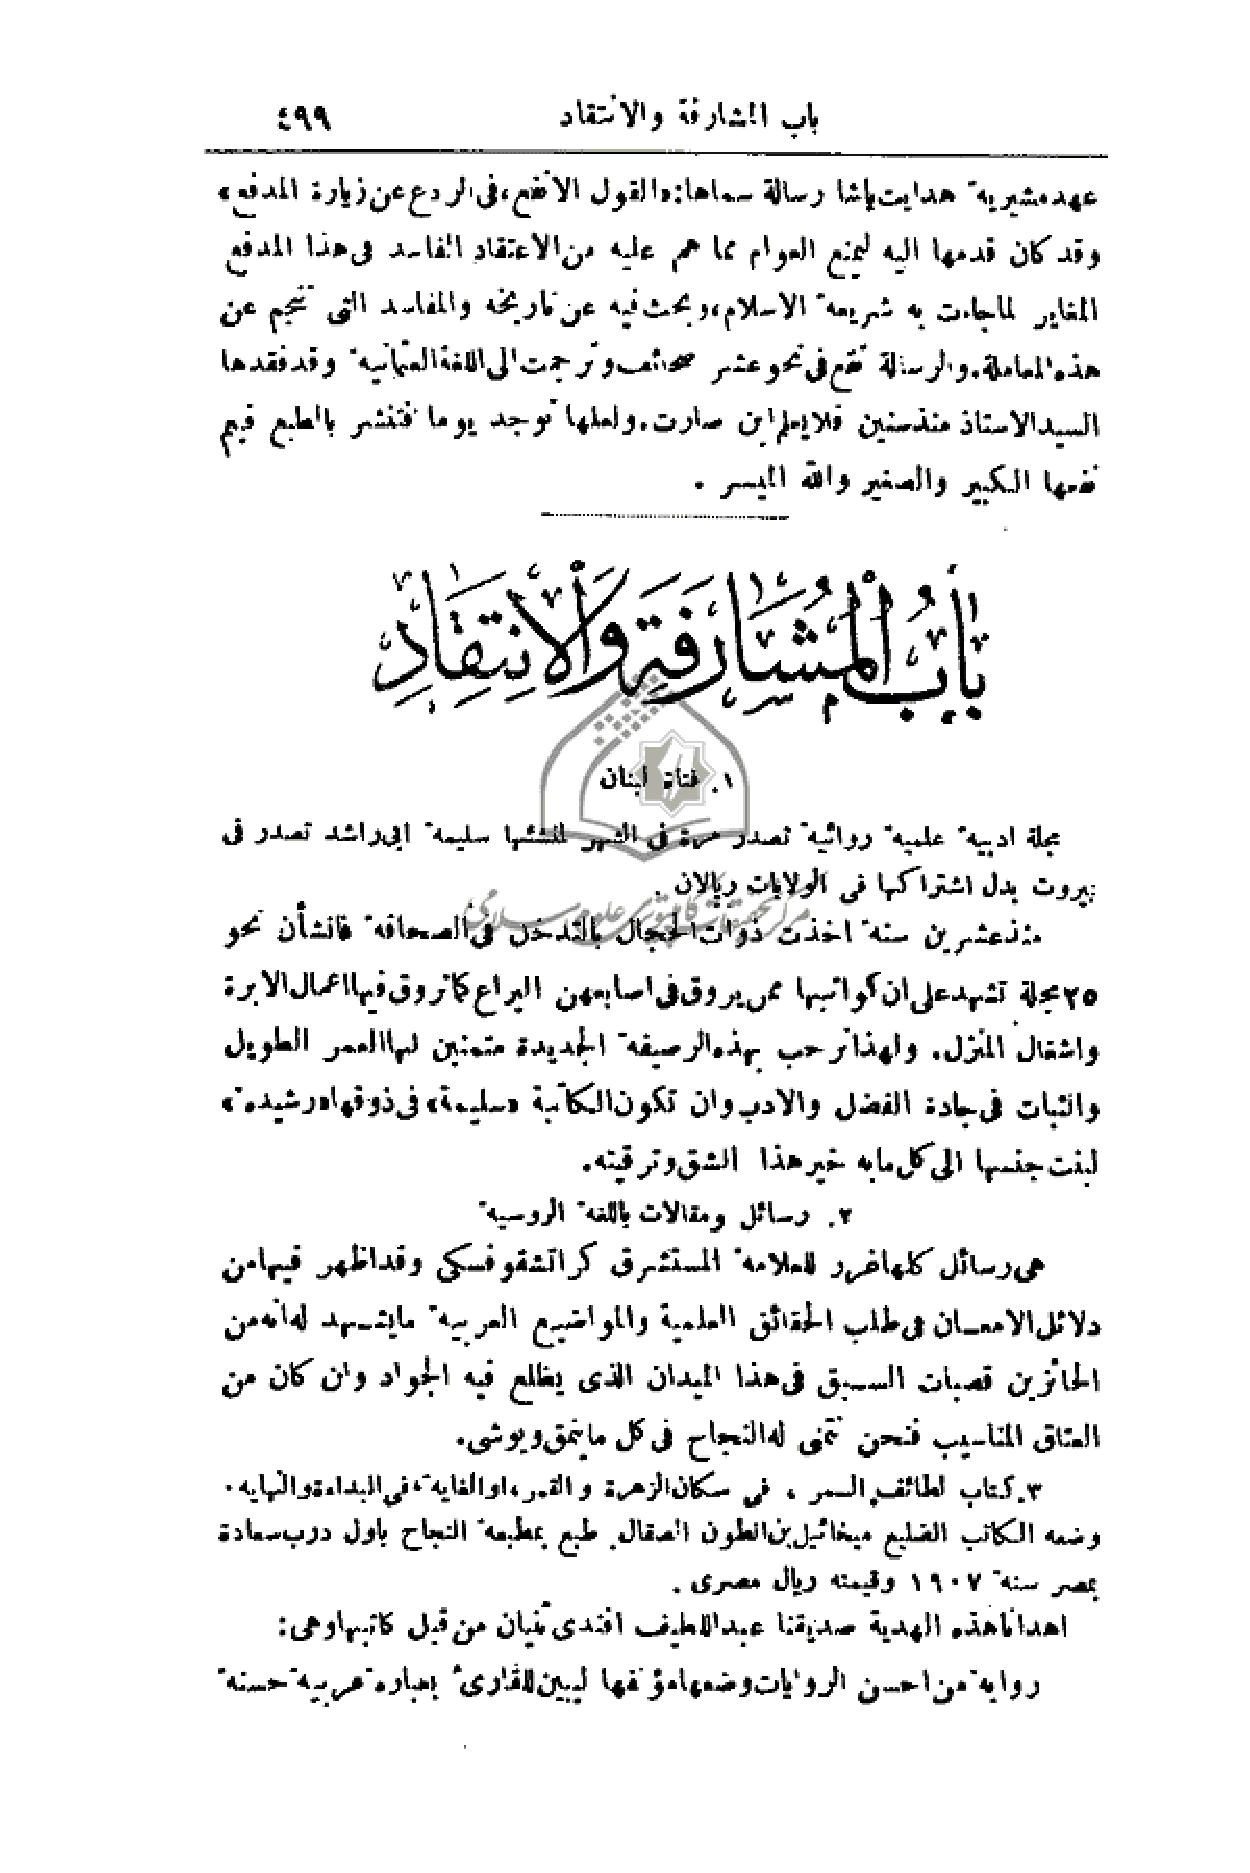 باب المشارفة والانتقاد ٤٩٩
عهد مشيرية هدايت باشا رسالة سماها: «القول الانفع، في الردع عن زيارة المدفع»
وقد كان قدمها اليه ليمنع العوام مما هم عليه من الاعتقاد الفاسد في هذا المدفع
المغاير لما جاءت به شريعة الاسلام، وبحث فيه عن تاريخه والمفاسد التي تنجم عن
هذه المعاملة. والرسالة تقع في نحو عشر صحائف وترجمت الى اللغة العثمانية وقد فقدها
السيد الاستاذ منذ سنين فلا يعلم اين صارت. ولعلها توجد يوما فتنشر بالطبع فيعم
نفعها الكبير والصغير والله الميسر .
بَابُ الْمُشَارَفَةِ وَالْاِنْتِقَادِ
١. فتاة لبنان
مجلة ادبية علمية روائية تصدر مرة في الشهر لمنشئها سليمة ابي راشد تصدر في
بيروت بدل اشتراكها في الولايات ريالان .
مركز تحقيقات كامپيوترى علوم اسلامى
منذ عشرين سنة اخذت ذوات الحجال بالتدخل في الصحافة فانشأن نحو
٢٥ مجلة تشهد على ان كواتبها ممن يروق في اصابعهن اليراع كما تروق فيها اعمال الابرة
واشغال المنزل. ولهذا نرحب بهذه الرصيفة الجديدة متمنين لها العمر الطويل
والثبات في جادة الفضل والادب وان تكون الكاتبة «سليمة» في ذوقها «رشيدة»
لبنت جنسها الى كل ما به خير هذا الشق وترقيته.
٢. رسائل ومقالات باللغة الروسية
هي رسائل كلها غرر للعلامة المستشرق كراتشقوفسكي وقد اظهر فيها من
دلائل الامعـان في طلب الحقائق العلمية والمواضيع العربية ما يشـهد له انه من
الحائزين قصبات السـبق في هذا الميدان الذي يظلع فيه الجواد وان كان من
العتاق المناسيب فنحن نتمنى له النجاح في كل ما ينمق ويوشي.
٣. كتاب لطائف السمر ، في سكان الزهرة والقمر، او الغاية، في البداءة والنهاية.
وضعه الكاتب الضليع ميخائيل بن انطون الصقال. طبع بمطبعة النجاح باول درب سعادة
بمصر سنة ١٩٠٧ وقيمته ريال مصري .
اهدانا هذه الهدية صديقنا عبد اللطيف افندي ثنيان من قبل كاتبها وهي:
رواية من احسن الروايات وضعها مؤلفها ليبين للقارئ بعبارة عربية حسنة